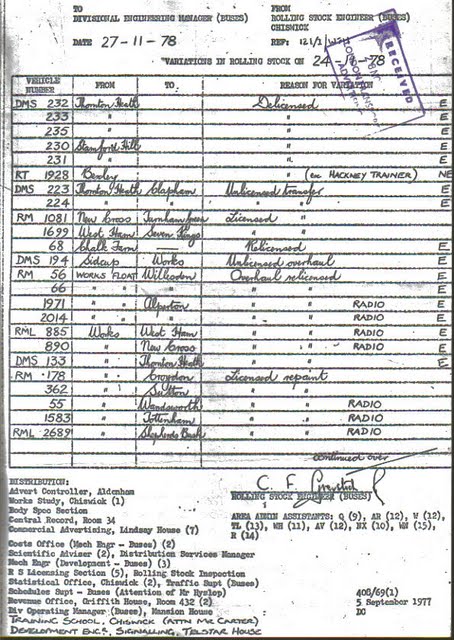 TO FROM
DIVISIONAL ENGINEERING MANAGER (BUSES) ROLLING STOCK ENGINEER (BUSES)
CHISWICK
DATE 27-11-78 REF:
RECEIVED
VARIATIONS IN ROLLING STOCK ON 24 -78
VEHICLE NUMBER FROM TO REASON FOR VARIATION
DMS 232 Thornton Heath Delicensed E
233 " " E
235 " " E
230 Stamford Hill " E
231 " " E
RT 1928 Bexley " (ex HACKNEY TRAINER) NE
DMS 223 Thornton Heath Clapham Unlicensed transfer E
224 " " " " E
RM 1081 New Cross Turnham Green Licensed "
1699 West Ham Seven Kings " "
68 Chalk Farm — Relicensed E
DMS 194 Sidcup Works Unlicensed overhaul E
RM 56 WORKS FLOAT Willesden Overhaul relicensed E
66 " " " " " E
1971 " " Alperton " " RADIO E
2014 " " " " " RADIO E
RML 885 Works West Ham " " RADIO E
890 " New Cross " " RADIO E
DMS 133 " Thornton Heath " " E
RM 178 " Croydon Licensed repaint
362 " Sutton " "
55 " Wandsworth " " RADIO
1583 " Tottenham " " RADIO
RML 2689 " Shepherds Bush " " RADIO
continued over
DISTRIBUTION:
Advert Controller, Aldenham
Works Study, Chiswick (1)
Body Spec Section
Central Record, Room 34
Commercial Advertising, Lindsay House (7)
C. F.
ROLLING STOCK ENGINEER (BUSES)
AREA ADMIN ASSISTANTS: Q (9), AR (12), W (12),
TL (13), WH (11), AV (12), NX (10), WN (15),
R (14)
Costs Office (Mech Engr - Buses) (2)
Scientific Adviser (2), Distribution Services Manager
Mech Engr (Development - Buses) (3)
R S Licensing Section (5), Rolling Stock Inspection
Statistical Office, Chiswick (2), Traffic Supt (Buses)
Schedules Supt - Buses (Attention of Mr Hyslop) 408/69(1)
Revenue Office, Griffith House, Room 432 (2) 5 September 1977
Div Operating Manager (Buses), Mansion House DO
TRAINING SCHOOL, CHISWICK (ATTN MR CARTER)
DEVELOPMENT ENG'S. SIGNALLING, TELSTAR HOUSE